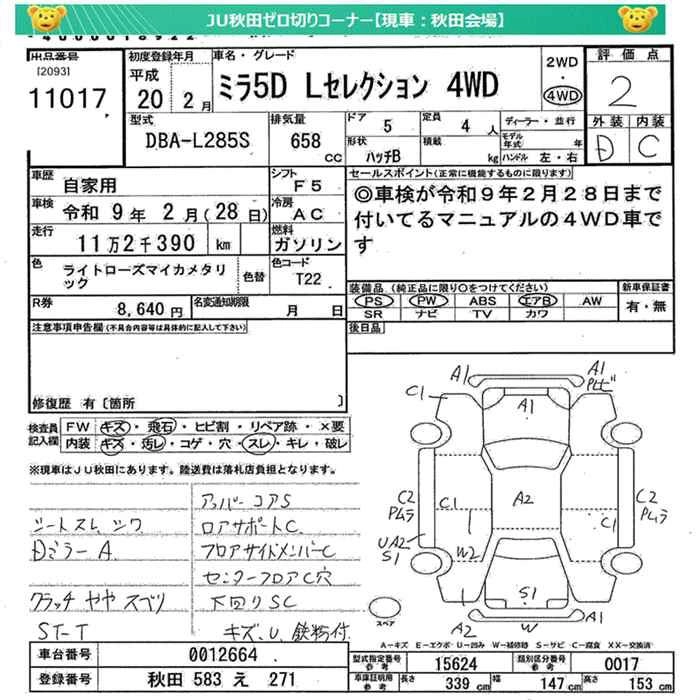 JU秋田ゼロ切りコーナー【現車：秋田会場】
出品番号
[2093]
11017
初度登録年月
平成
20 2月
車名・グレード
ミラ5D Lセレクション 4WD
2WD
・
4WD
評価点
2
外装 内装
D C
型式
DBA-L285S
排気量
658
cc
ドア 5
定員 4人
ディーラー・並行
モデル年式 年
形状 ハッチB
積載 kg
ハンドル 左・右
車歴 自家用
シフト F5
車検 令和 9年 2月(28日)
冷房 AC
走行 11万2千390 km
燃料 ガソリン
色 ライトローズマイカメタリック
色替
色コード T22
R券 8,640円
名変通知期限 月 日
セールスポイント(正常に機能するものに限ります)
◎車検が令和9年2月28日まで
付いてるマニュアルの4WD車で
す
装備品(純正品に限り○をつけてください)
新車保証書
PS PW ABS エアB AW
有・無
SR ナビ TV カワ
注意事項申告欄(不具合内容等は具体的に記入して下さい)
後日品
修復歴 有〔箇所 〕
検査員
記入欄
FW キズ・飛石・ヒビ割・リペア跡・×要
内装 キズ・汚レ・コゲ・穴・スレ・キレ・破レ
※現車はJU秋田にあります。陸送費は落札店負担となります。
アッパーコアS
シートスレ シワ
ロアサポートC
Dミラー A
フロアサイドメンバーC
センターフロアC穴
クラッチ ヤヤ スベリ
下回りSC
ST-T
キズ、U、鉄粉付
A1
A1
C1
A1
C2
Pムラ
C1
A2
C1
C2
Pムラ
UA2
S1
W2
S1
A2
W
A1
スペア
A-キズ E-エクボ U-凹み W-補修跡 S-サビ C-腐食 XX-交換済
車台番号 0012664
登録番号 秋田 583 え 271
型式指定番号 参考 15624
類別区分番号 参考 0017
車庫証明用 参考 長さ 339cm 幅 147cm 高さ 153cm